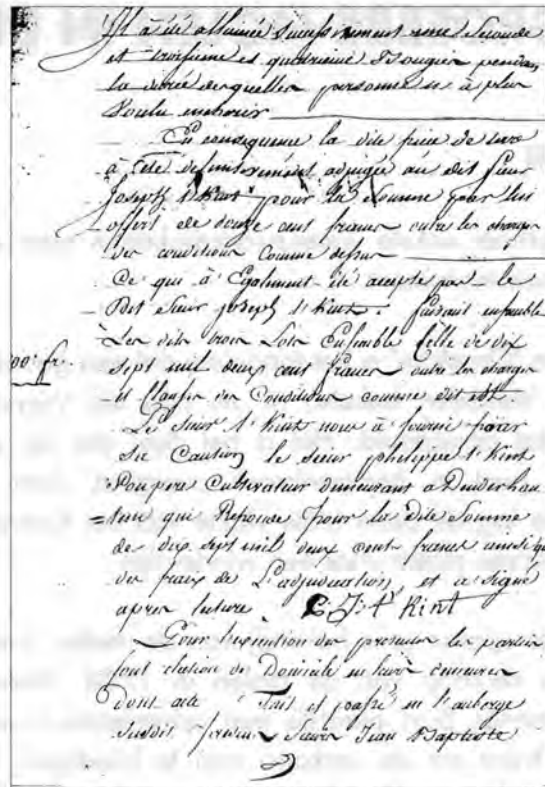 Il a été allumée Successivement une Seconde
et troisieme et quatrieme Bougier pendan
la durée desquelles personne n'a plus
Voulu encherir
En consequence la dite piece de terre
a été definitivement adjugée au dit Sieur
Joseph t'Kint pour la Somme par lui
offert de douze cent francs outre les charges
des conditions comme dessus
Ce qui a Egalement été accepté par le
Dit Sieur joseph t'Kint. faisant ensemble
Les dits trois Lots Ensemble Celle de dix
sept mil deux cent francs outre les charges
00: fr.
et Clauses des Conditions comme dit est.
Le Sieur t'Kint nous a fourni pour
Sa Caution le sieur philippe t'Kint
Son pere Cultivateur demeurant a Denderhau
=tem qui Reponde pour la dite Somme
de dix sept mil deux cent francs ainsi que
des fraix de L'adjudication, et a signé
apres lecture P: J: t' Kint
Pour l'exécution des presentes les parties
font election de Domicile en leurs demeures
dont acte Fait et passé en l'auberge
Susdit Sieur Jean Baptiste